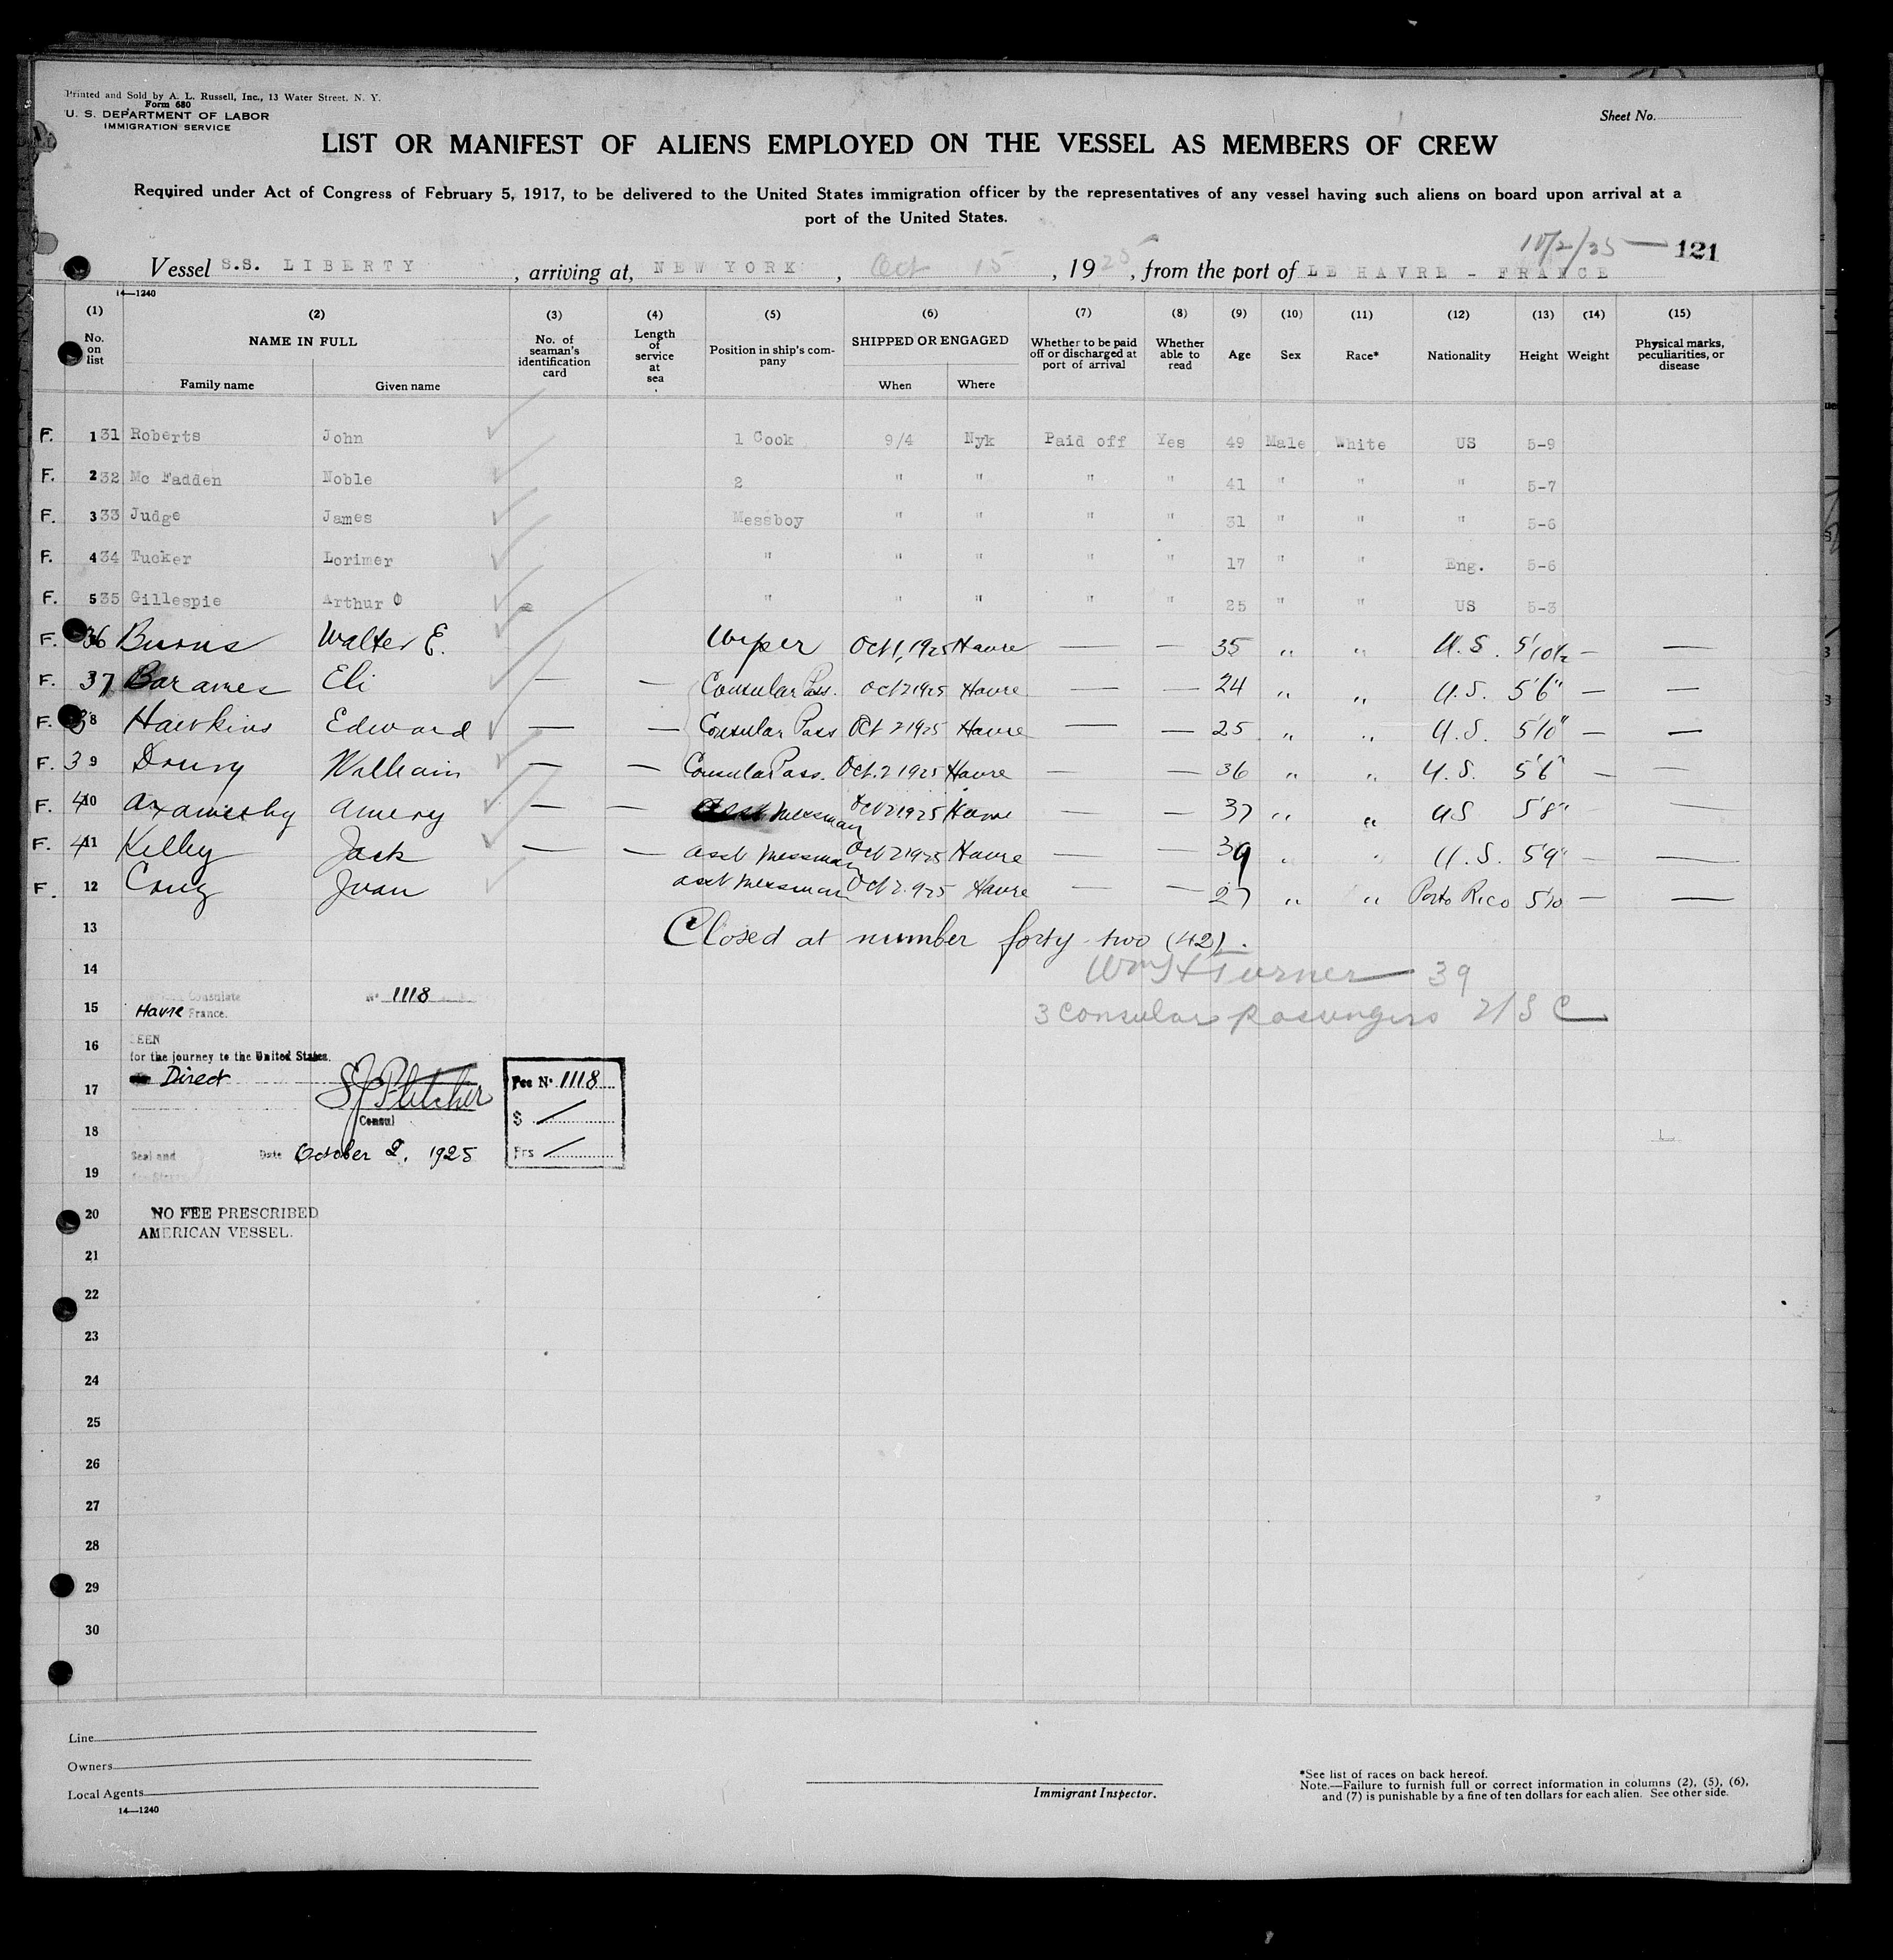 Printed and Sold by A. L. Russell, Inc., 13 Water Street, N. Y.
Form 680
U. S. DEPARTMENT OF LABOR
IMMIGRATION SERVICE
Sheet No.
LIST OR MANIFEST OF ALIENS EMPLOYED ON THE VESSEL AS MEMBERS OF CREW
Required under Act of Congress of February 5, 1917, to be delivered to the United States immigration officer by the representatives of any vessel having such aliens on board upon arrival at a
port of the United States.
10/2/25 — 121
Vessel S.S. LIBERTY, arriving at, NEW YORK, Oct 15, 1925, from the port of LE HAVRE - FRANCE
14—1240
(1) (2) (3) (4) (5) (6) (7) (8) (9) (10) (11) (12) (13) (14) (15)
No. on list NAME IN FULL Family name Given name No. of seaman's identification card Length of service at sea Position in ship's company SHIPPED OR ENGAGED When Where Whether to be paid off or discharged at port of arrival Whether able to read Age Sex Race* Nationality Height Weight Physical marks, peculiarities, or disease
F. 1 31 Roberts John 1 Cook 9/4 Nyk Paid off Yes 49 Male White US 5-9
F. 2 32 Mc Fadden Noble 2 " " " " 41 " " " 5-7
F. 3 33 Judge James Messboy " " " " 31 " " " 5-6
F. 4 34 Tucker Lorimer " " " " " 17 " " Eng. 5-6
F. 5 35 Gillespie Arthur O " " " " " 25 " " US 5-3
F. 36 Burns Walter E. Wiper Oct 1, 1925 Havre — — 35 " " U.S. 5'10½ — —
F. 37 Eli — — Consular Pass. Oct 2 1925 Havre — — 24 " " U.S. 5'6" — —
F. 38 Hawkins Edward — — Consular Pass Oct 2 1925 Havre — — 25 " " U.S. 5'10" — —
F. 39 William — — Consular Pass. Oct. 2 1925 Havre — — 36 " " U.S. 5'6" — —
F. 40 10 Amery — — Asst Messman Oct 2 1925 Havre — — 37 " " US 5'8" —
F. 41 11 Kelley Jack — — asst Messman Oct 2 1925 Havre — — 39 " " U.S. 5'9" — —
F. 12 Juan asst Messman Oct 2. 925 Havre — — 27 " " Porto Rico 5'10 — —
13 Closed at number forty-two (42).
14 Wm H Turner — 39
15 3 Consular Passengers USC
Consulate No 1118
Havre France.
16 SEEN
for the journey to the United States.
17 Direct
S J Pletcher
Consul
Fee No 1118
$ /
Frs /
18
Seal and Date October 2, 1925
19
20 NO FEE PRESCRIBED
AMERICAN VESSEL.
21
22
23
24
25
26
27
28
29
30
Line
Owners
Local Agents
14—1240
Immigrant Inspector.
*See list of races on back hereof.
Note.—Failure to furnish full or correct information in columns (2), (5), (6),
and (7) is punishable by a fine of ten dollars for each alien. See other side.